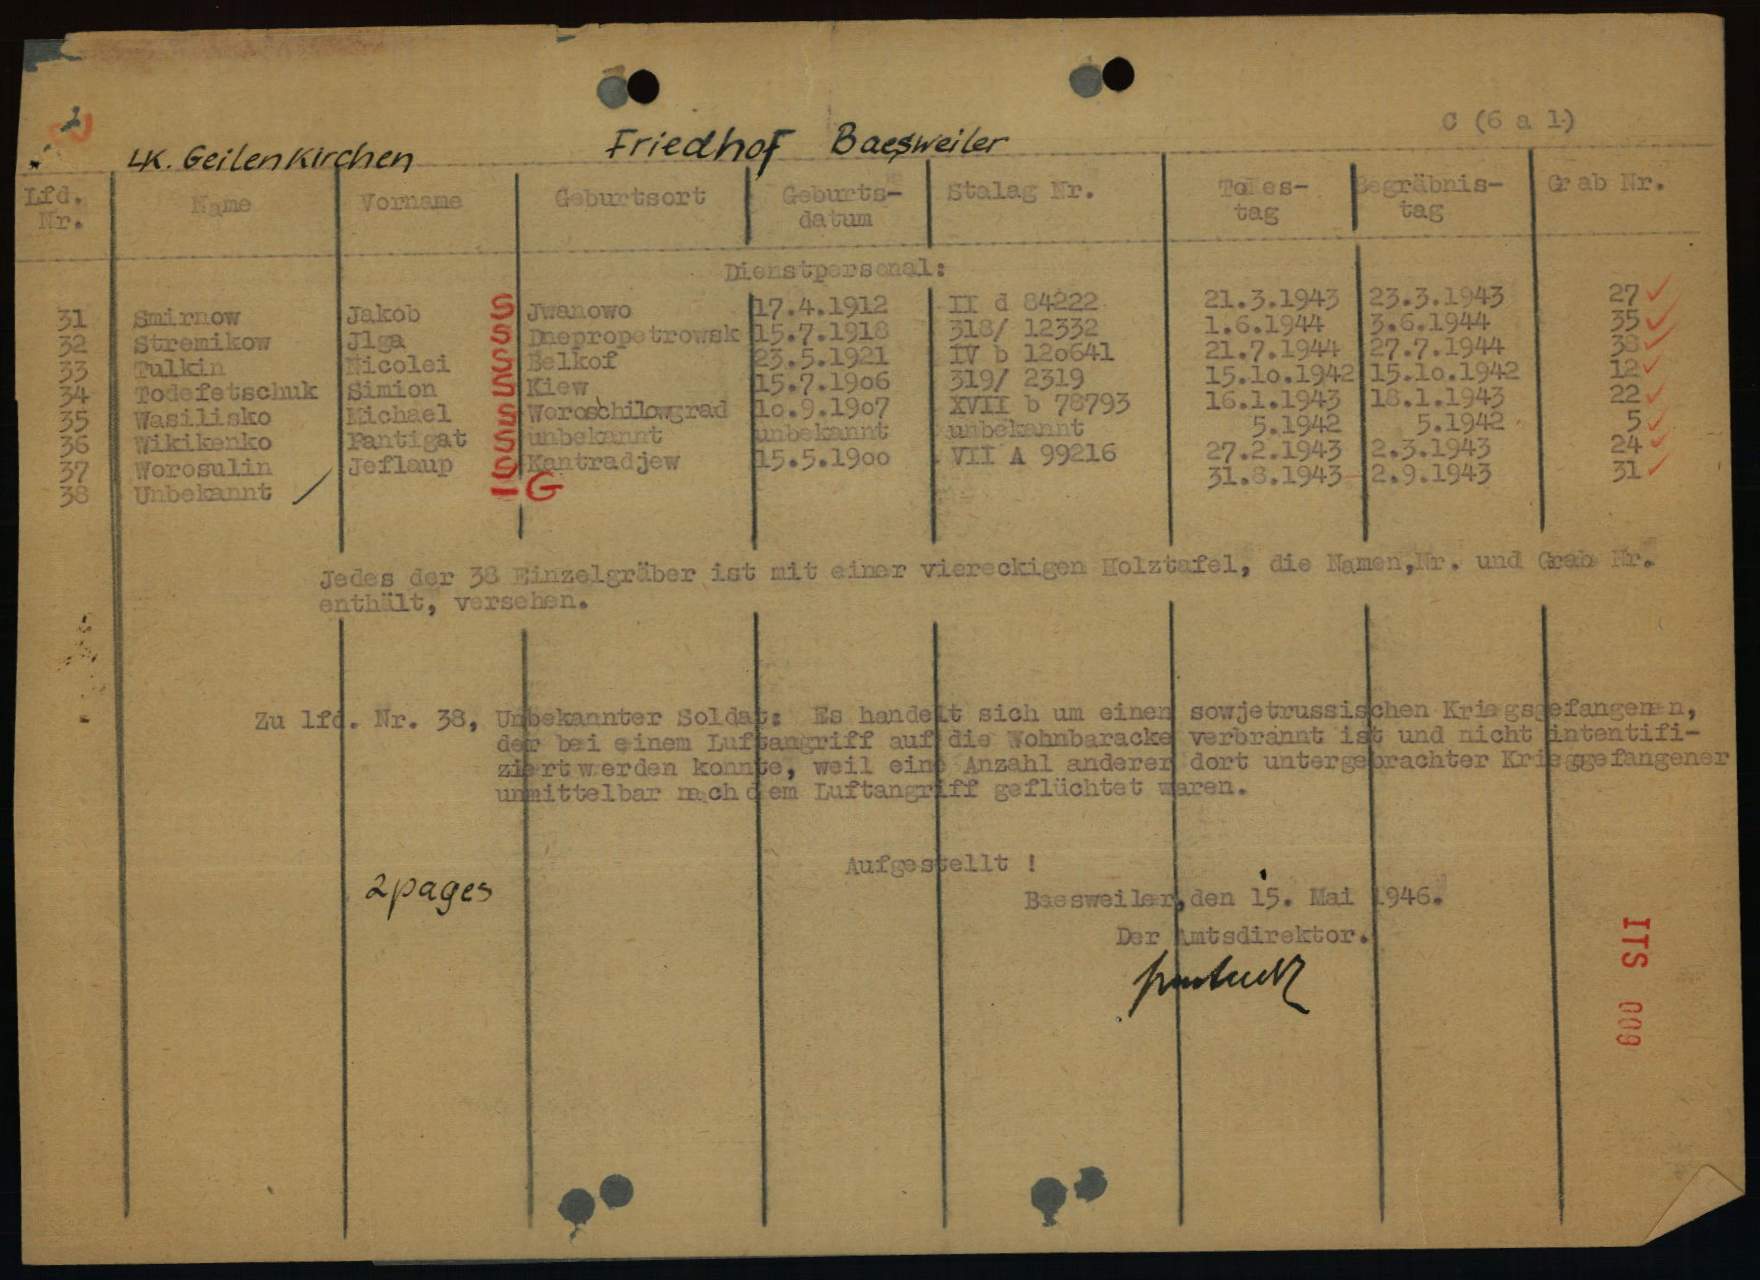 2
C (6 a 1)
LK. Geilenkirchen Friedhof Baesweiler
Lfd. Nr. Name Vorname Geburtsort Geburts-datum Stalag Nr. Todes-tag Begräbnis-tag Grab Nr.
Dienstpersonal:
31 Smirnow Jakob S Jwanowo 17.4.1912 II d 84222 21.3.1943 23.3.1943 27
32 Stremikow Jlga S Dnepropetrowsk 15.7.1918 318/ 12332 1.6.1944 3.6.1944 35
33 Tulkin Nicolei S Belkof 23.5.1921 IV b 120641 21.7.1944 27.7.1944 38
34 Todefetschuk Simion S Kiew 15.7.1906 319/ 2319 15.10.1942 15.10.1942 12
35 Wasilisko Michael S Woroschilowgrad 10.9.1907 XVII b 78793 16.1.1943 18.1.1943 22
36 Wikikenko Pantigat S unbekannt unbekannt unbekannt 5.1942 5.1942 5
37 Worosulin Jeflaup S Kantradjew 15.5.1900 VII A 99216 27.2.1943 2.3.1943 24
38 Unbekannt 1 G 31.8.1943 2.9.1943 31
Jedes der 38 Einzelgräber ist mit einer viereckigen Holztafel, die Namen,Nr. und Grab Nr.
enthält, versehen.
Zu lfd. Nr. 38, Unbekannter Soldat: Es handelt sich um einen sowjetrussischen Kriegsgefangenen,
der bei einem Luftangriff auf die Wohnbaracke verbrannt ist und nicht intentifi-
ziert werden konnte, weil eine Anzahl anderer dort untergebrachter Krieggefangener
unmittelbar nach dem Luftangriff geflüchtet waren.
Aufgestellt !
2pages
Baesweiler,den 15. Mai 1946.
Der Amtsdirektor.
ITS 009